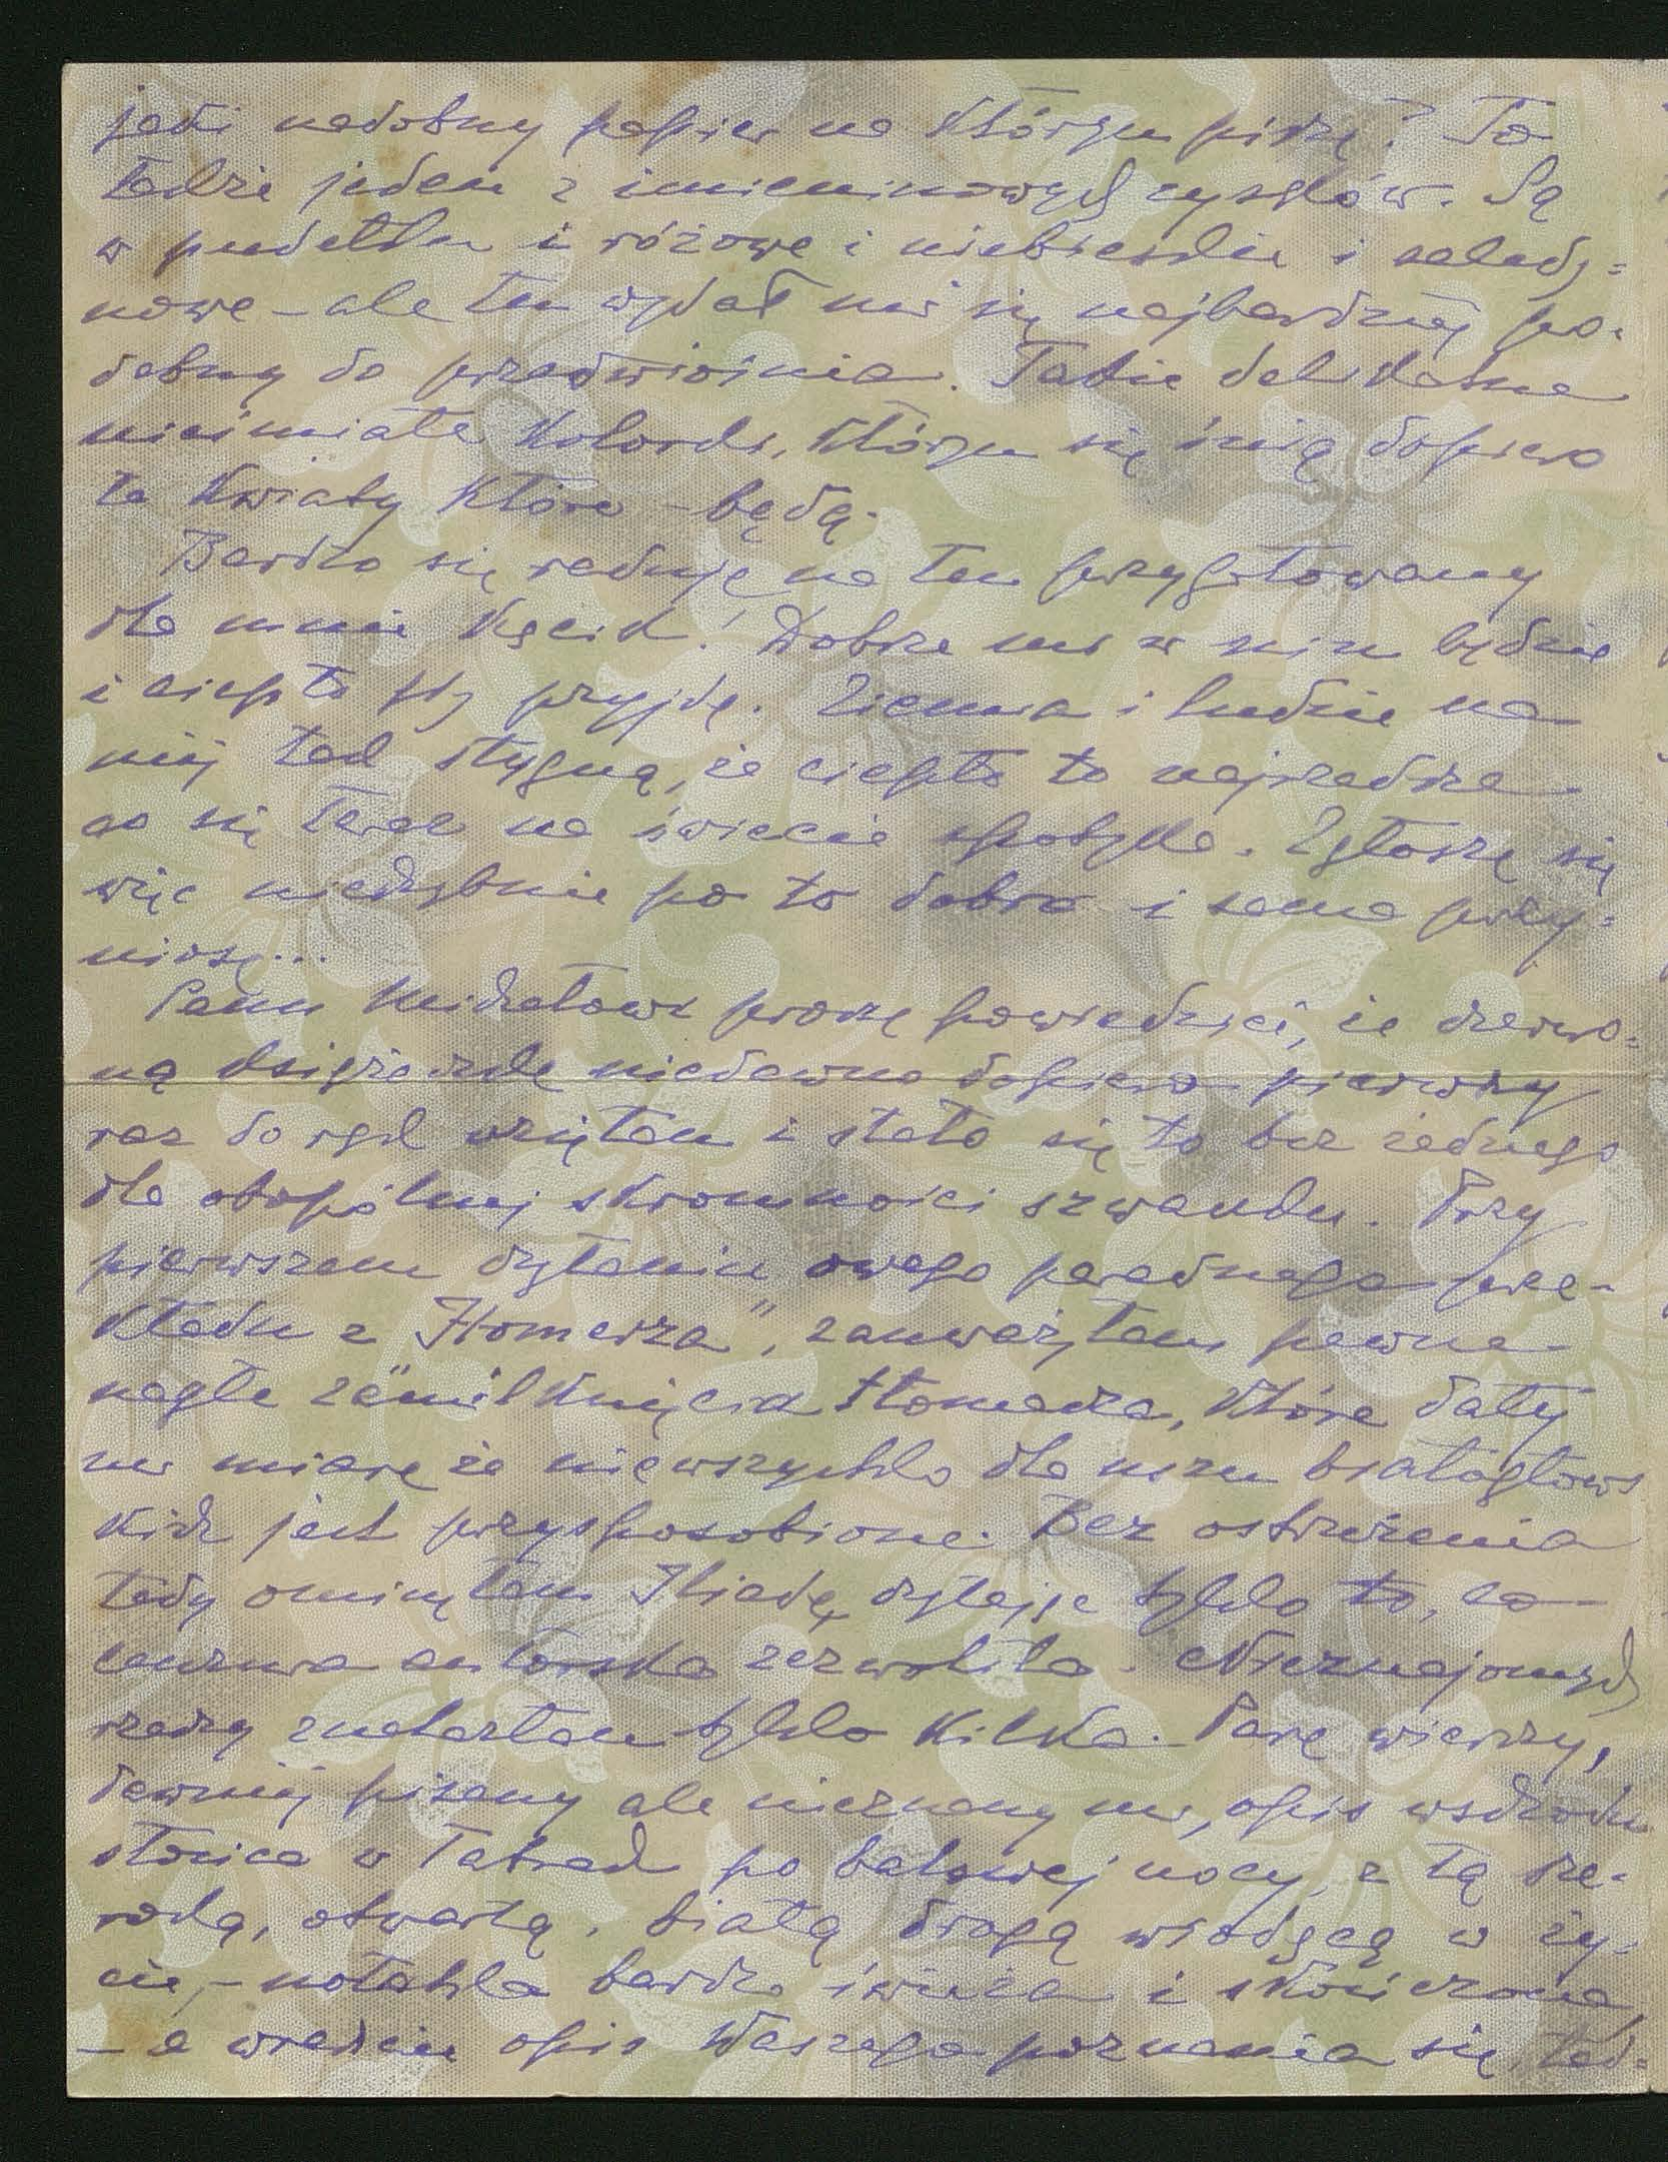 jaki nadobny papier na którym piszę? To
także jeden z imieninowych zysków. Są
w pudełku i różowe i niebieskie i seledy=
nowe – ale ten wydał mi się najbardziej po=
dobny do przedwiośnia. Takie delikatne
nieśmiałe kolorki, którym się śnią dopiero
te kwiaty które – będą.
Bardzo się raduję na ten przygotowany
dla mnie kącik! Dobrze mi w nim będzie
i ciepło gdy przyjdę. Ziemia i ludzie na
niej tak stygną, że ciepło to najrzadsze
co się teraz na świecie spotyka. Zgłoszę się
więc niechybnie po to dobro i sama przy=
niosę...
Panu Michałowi proszę powiedzieć, że czerwo=
ną książeczkę niedawno dopiero pierwszy
raz do rąk wzięłam i stało się to bez żadnego
dla obopólnej skromności szwanku. Przy
pierwszem czytaniu owego paradnego prze-
kładu z "Homerza", zauważyłam pewne
nagłe zamilknięcia Homerza, które dały
mi miarę że nie wszystko dla uszu białogłows
kich jest przysposobione. Bez ostrzeżenia
tedy ominęłam Iliadę, czytając tylko to, co
cenzura autorska zezwoliła. Nieznajomych
rzeczy znalazłam tylko kilka. Parę wierszy,
dawniej pisany ale nieznany mi, opis wschodu
słońca w Tatrach po balowej nocy, z tą sze=
roką, otwartą, białą drogą wiodącą w ży=
cie, – notatka bardzo świeża i skończona,
– a wreszcie opis Waszego poznania się, tak=